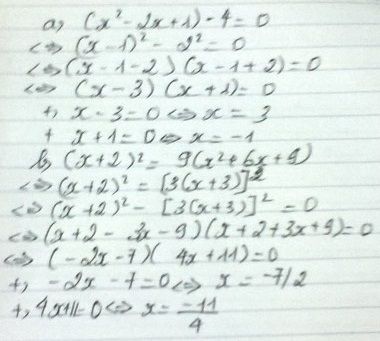 a, (x² - 2x + 1) - 4 = 0
<=> (x - 1)² - 2² = 0
<=> (x - 1 - 2) (x - 1 + 2) = 0
<=> (x - 3) (x + 1) = 0
+, x - 3 = 0 <=> x = 3
+ x + 1 = 0 <=> x = -1
b, (x + 2)² = 9(x² + 6x + 9)
<=> (x + 2)² = [3(x + 3)]²
<=> (x + 2)² - [3(x + 3)]² = 0
<=> (x + 2 - 3x - 9) (x + 2 + 3x + 9) = 0
<=> (-2x - 7)( 4x + 11) = 0
+, -2x - 7 = 0 <=> x = -7/2
+, 4x + 11 = 0 <=> x = -11/4